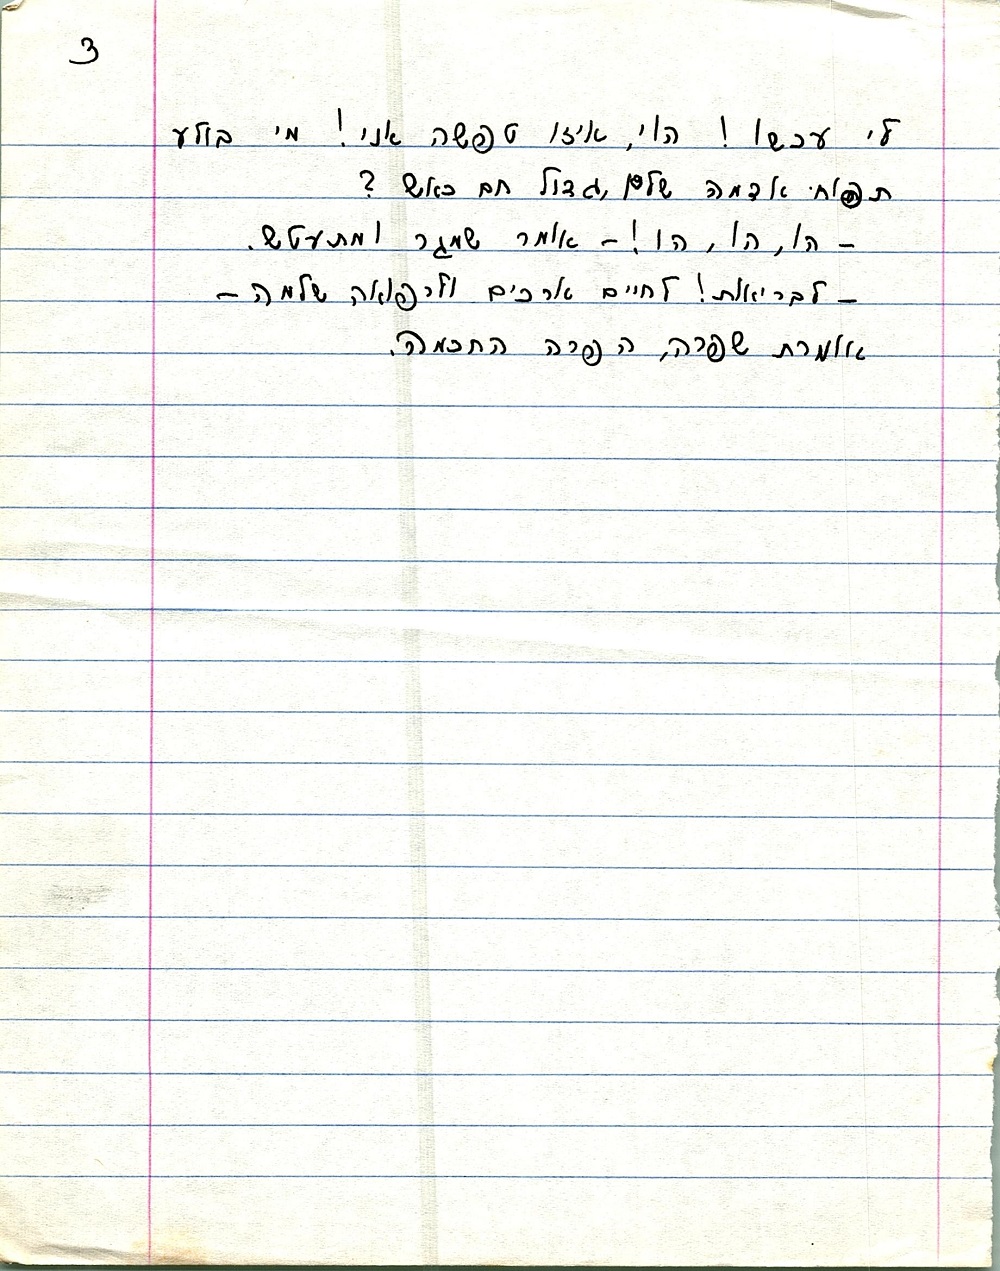 3
לי עכשו! הוי, איזו טפשה אני! מי בולע
תפוחי אדמה שלם, גדול חם כאש?
– הו, הו, הו! – אומר שמגר ומתעטש.
– לבריאות! לחיים ארכים ולרפואה שלמה –
אומרת שפרה, הפרה החכמה.